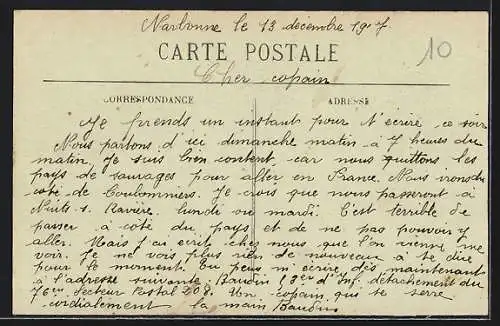 Narbonne le 13 décembre 1917
CARTE POSTALE
10
Cher copain
CORRESPONDANCE
ADRESSE
Je prends un instant pour t'écrire ce soir
Nous partons d'ici dimanche matin à 7 heures du
matin. Je suis bien content, car nous quittons les
pays de sauvages pour aller en France. Nous irons du
côté de Coulommiers. Je crois que nous passeront à
Nuits s. Ravière lundi ou mardi. C'est terrible de
passer à côté du pays et de ne pas pouvoir y
aller. Mais j'ai écrit chez nous que l'on vienne me
voir. Je ne vois plus rien de nouveau à te dire
pour le moment. Tu peux m'écrire dès maintenant
à l'adresse suivante Baudin 13e d'Inf. détachement du
76e Secteur Postal 208. Un copain qui te serre
cordialement la main Baudin